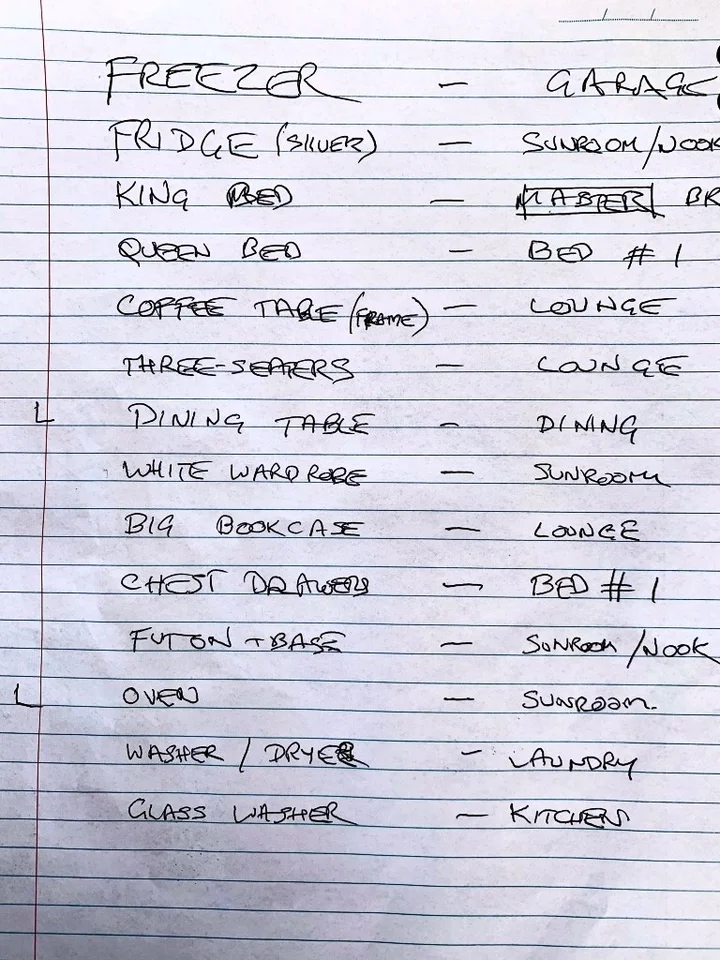 FREEZER — GARAGE
FRIDGE (SILVER) — SUNROOM/NOOK
KING BED — MASTER BR
QUEEN BED — BED # 1
COFFEE TABLE (FRAME) — LOUNGE
THREE-SEATERS — LOUNGE
L DINING TABLE - DINING
WHITE WARDROBE — SUNROOM
BIG BOOKCASE — LOUNGE
CHEST DRAWERS — BED # 1
FUTON + BASE — SUNROOM/NOOK
L OVEN — SUNROOM.
WASHER / DRYER - LAUNDRY
GLASS WASHER — KITCHEN